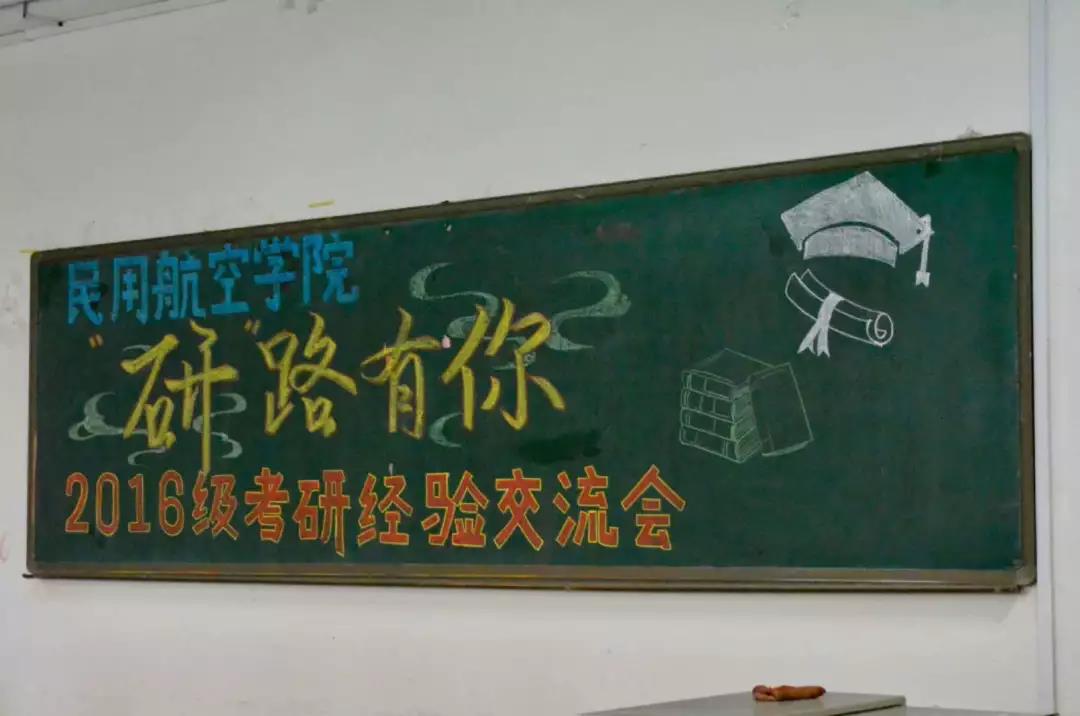 民用航空学院
“研”路有你
2016级考研经验交流会